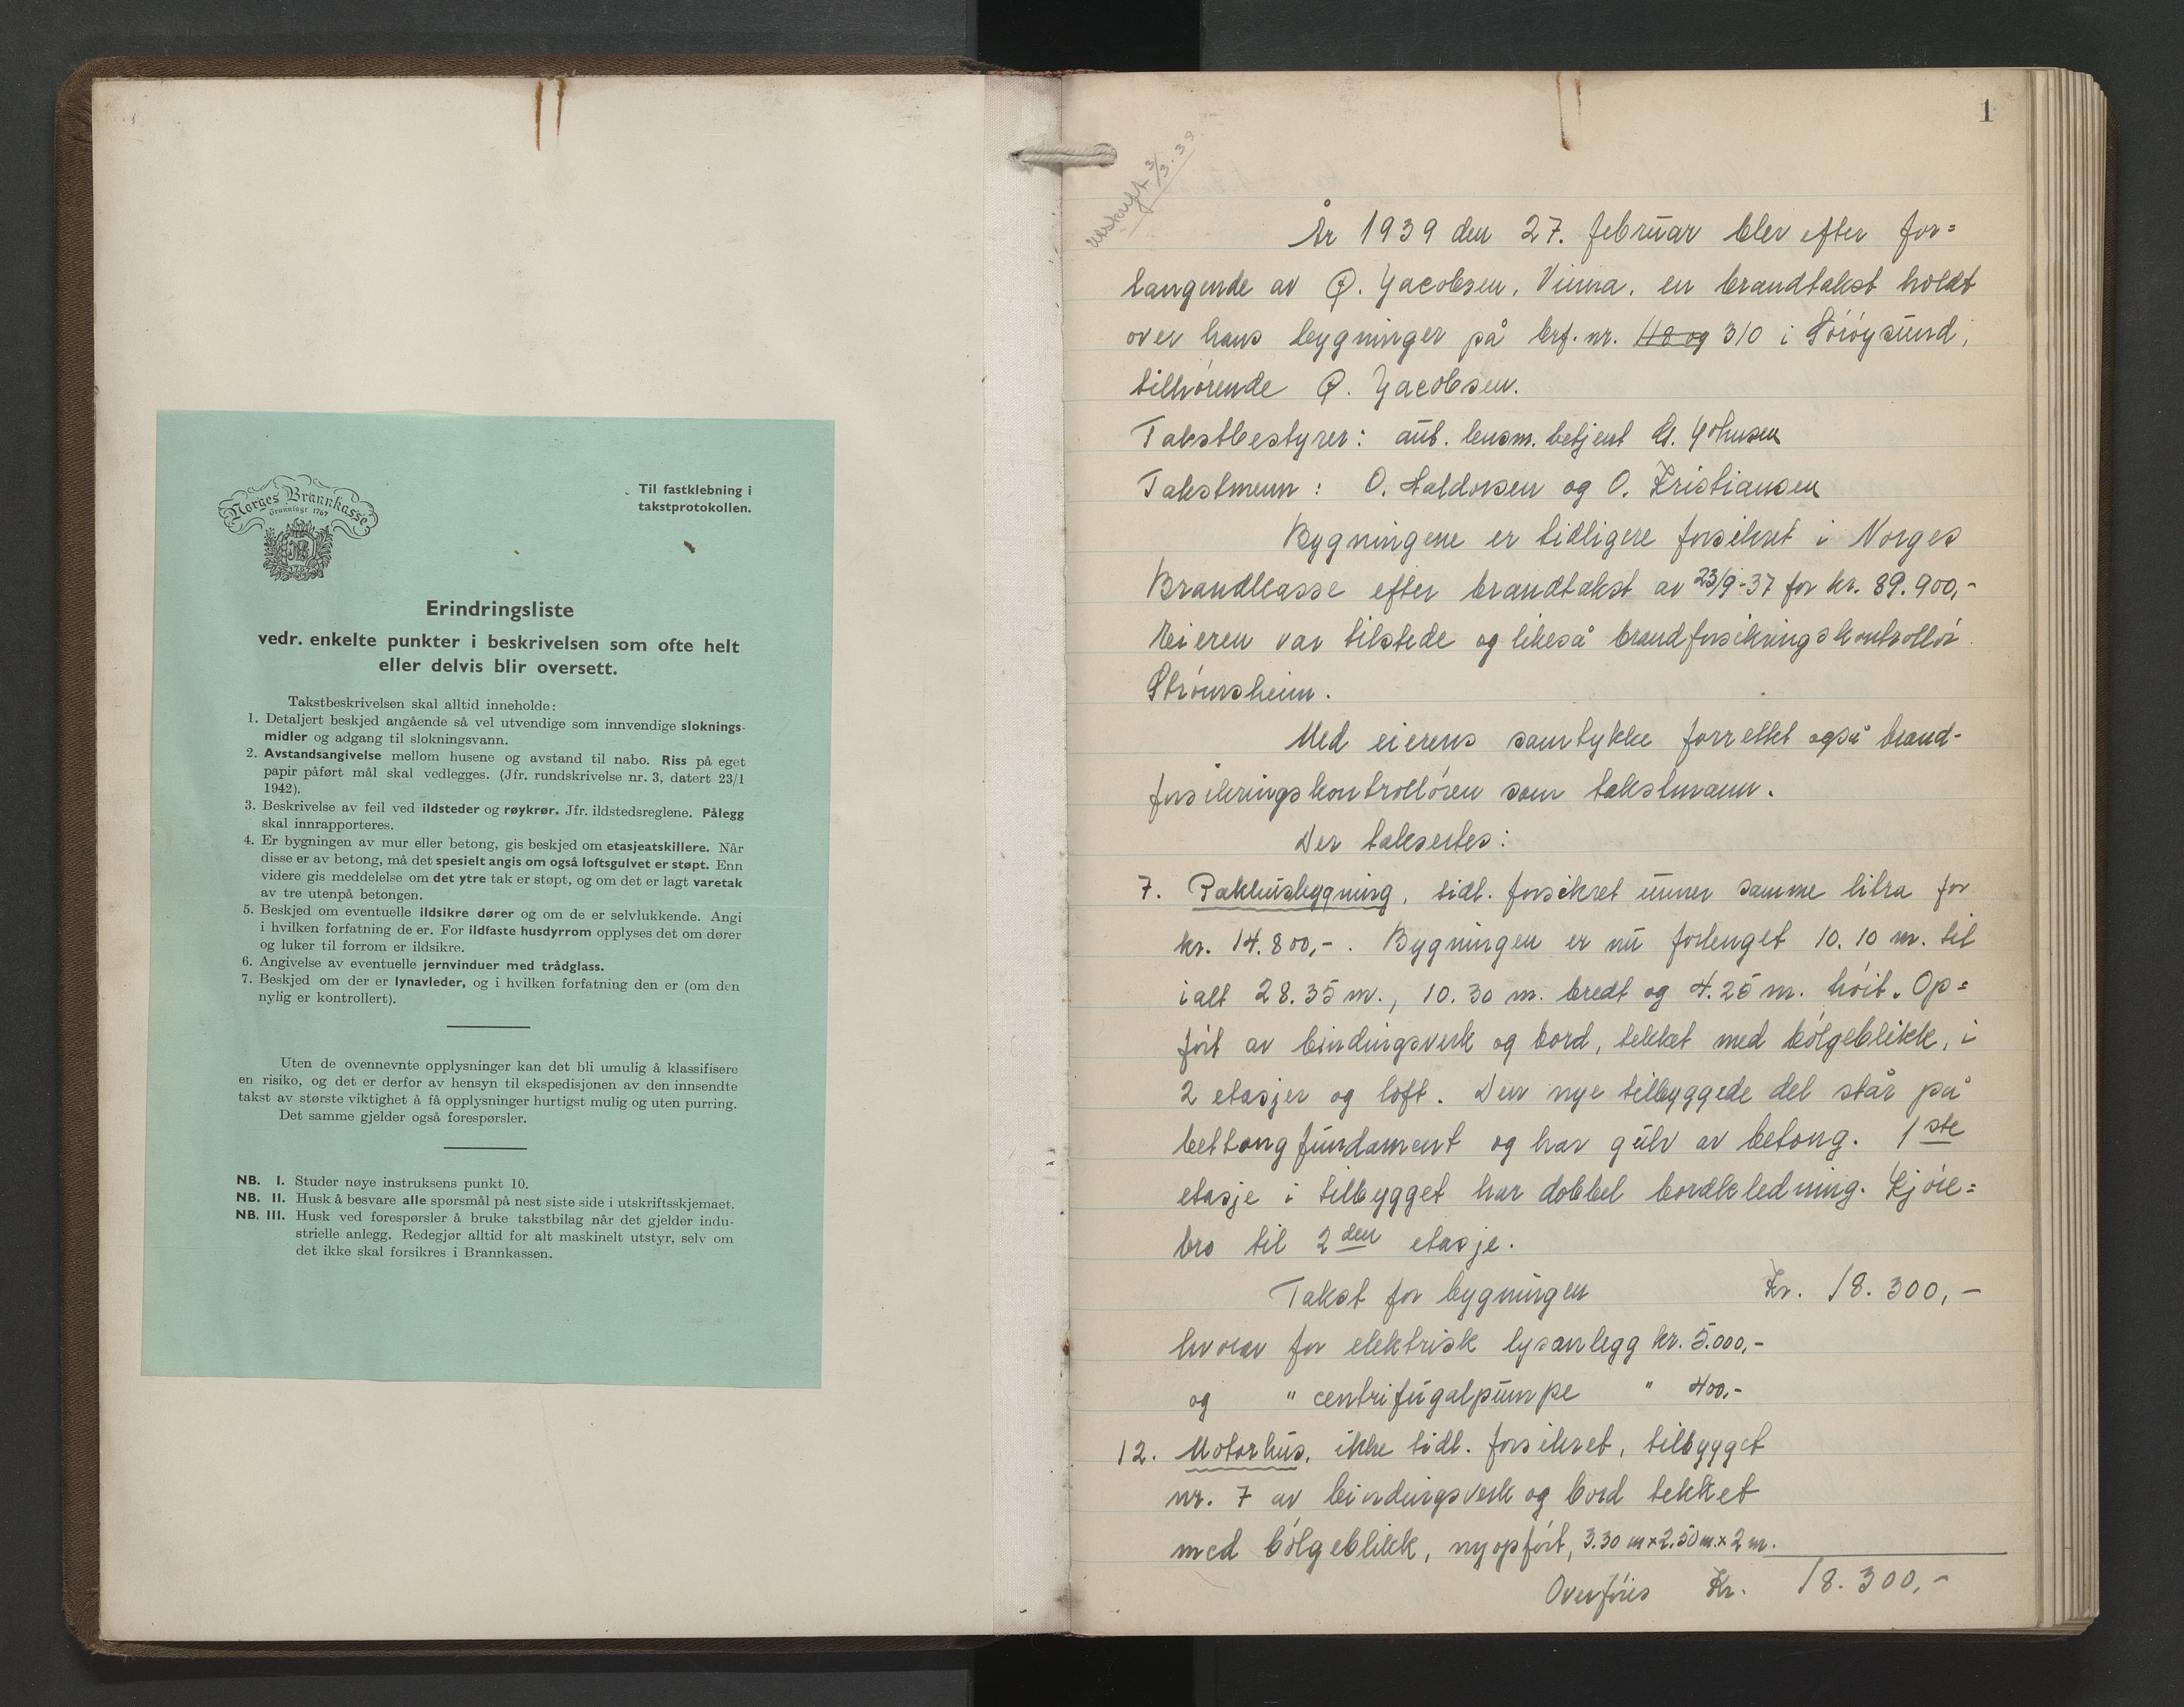 Norges Brannkasse
Grunnlagt 1767
1767
Til fastklebning i
takstprotokollen.
Erindringsliste
vedr. enkelte punkter i beskrivelsen som ofte helt
eller delvis blir oversett.
Takstbeskrivelsen skal alltid inneholde:
1. Detaljert beskjed angående så vel utvendige som innvendige sloknings-
midler og adgang til slokningsvann.
2. Avstandsangivelse mellom husene og avstand til nabo. Riss på eget
papir påført mål skal vedlegges. (Jfr. rundskrivelse nr. 3, datert 23/1
1942).
3. Beskrivelse av feil ved ildsteder og røykrør. Jfr. ildstedsreglene. Pålegg
skal innrapporteres.
4. Er bygningen av mur eller betong, gis beskjed om etasjeatskillere. Når
disse er av betong, må det spesielt angis om også loftsgulvet er støpt. Enn
videre gis meddelelse om det ytre tak er støpt, og om det er lagt varetak
av tre utenpå betongen.
5. Beskjed om eventuelle ildsikre dører og om de er selvlukkende. Angi
i hvilken forfatning de er. For ildfaste husdyrrom opplyses det om dører
og luker til forrom er ildsikre.
6. Angivelse av eventuelle jernvinduer med trådglass.
7. Beskjed om der er lynavleder, og i hvilken forfatning den er (om den
nylig er kontrollert).
Uten de ovennevnte opplysninger kan det bli umulig å klassifisere
en risiko, og det er derfor av hensyn til ekspedisjonen av den innsendte
takst av største viktighet å få opplysninger hurtigst mulig og uten purring.
Det samme gjelder også forespørsler.
NB. I. Studer nøye instruksens punkt 10.
NB. II. Husk å besvare alle spørsmål på nest siste side i utskriftsskjemaet.
NB. III. Husk ved forespørsler å bruke takstbilag når det gjelder indu-
strielle anlegg. Redegjør alltid for alt maskinelt utstyr, selv om
det ikke skal forsikres i Brannkassen.
1
utskrift 3/3.39.
År 1939 den 27. februar blev efter for=
langende av Jacobsen, en brandtakst holdt
over hans bygninger på brf. nr. 48 og 310 i Söröysund,
tilhörende Jacobsen.
Takstbestyrer: aut. lensm. betjent Johnsen
Takstmenn: O. Haldorsen og O. Kristiansen
Bygningene er tidligere forsikret i Norges
Brandkasse efter brandtakst av 23/9-37 for kr. 89.900,-
Eieren var tilstede og likeså brandforsikringskontrollör
Strömsheim.
Med eierens samtykke forrettet også brand-
forsikringskontrollören som takstmann.
Der taksertes:
7. Pakhusbygning, tidl. forsikret unner samme litra for
kr. 14.800,-. Bygningen er nu forlenget 10.10 m. til
ialt 28.35 m., 10.30 m. bredt og 4.25 m. höit. Op=
fört av bindingsverk og bord, tekket med bölgeblikk, i
2 etasjer og loft. Den nye tilbyggede del står på
bettong fundament og har gulv av betong. 1ste
etasje i tilbygget har dobbel bordkledning. Kjöre=
bro til 2den etasje.
Takst for bygningen Kr. 18.300,-
hvorav for elektrisk lysanlegg kr. 5.000,-
og " centrifugalpumpe " 400,-
12. Motorhus, ikke tidl. forsikret, tilbygget
nr. 7 av bindingsverk og bord tekket
med bölgeblikk, nyopfört, 3.30 m x 2.50 m. x 2 m.
Overföres Kr. 18.300,-